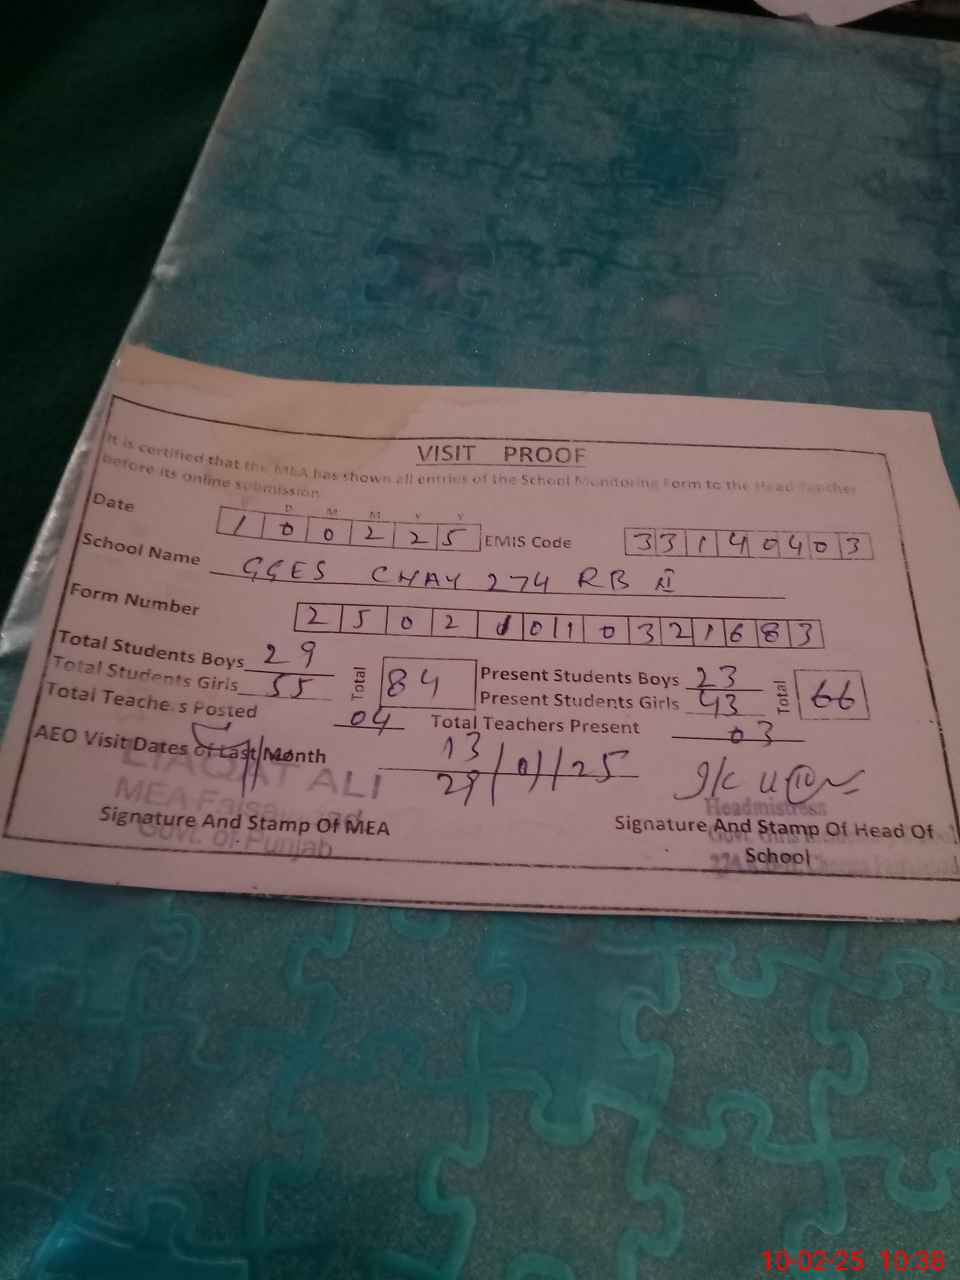 VISIT PROOF
It is certified that the MEA has shown all entries of the School Monitoring Form to the Head Teacher
before its online submission
D M M Y Y
Date 1 0 0 2 2 5 EMIS Code 3 3 1 4 0 4 0 3
School Name GGES CHAY 274 RB II
Form Number 2 5 0 2 0 0 1 0 3 2 1 6 8 3
Total Students Boys 29 Total 84 Present Students Boys 23 Total 66
Total Students Girls 55 Present Students Girls 43
Total Teachers Posted 04 Total Teachers Present 03
AEO Visit Dates of Last Month 13
29/01/25
LIAQAT ALI
MEA Faisalabad
Govt. of Punjab
Signature And Stamp Of MEA
Headmistress
Signature And Stamp Of Head Of
School
10-02-25 10:38